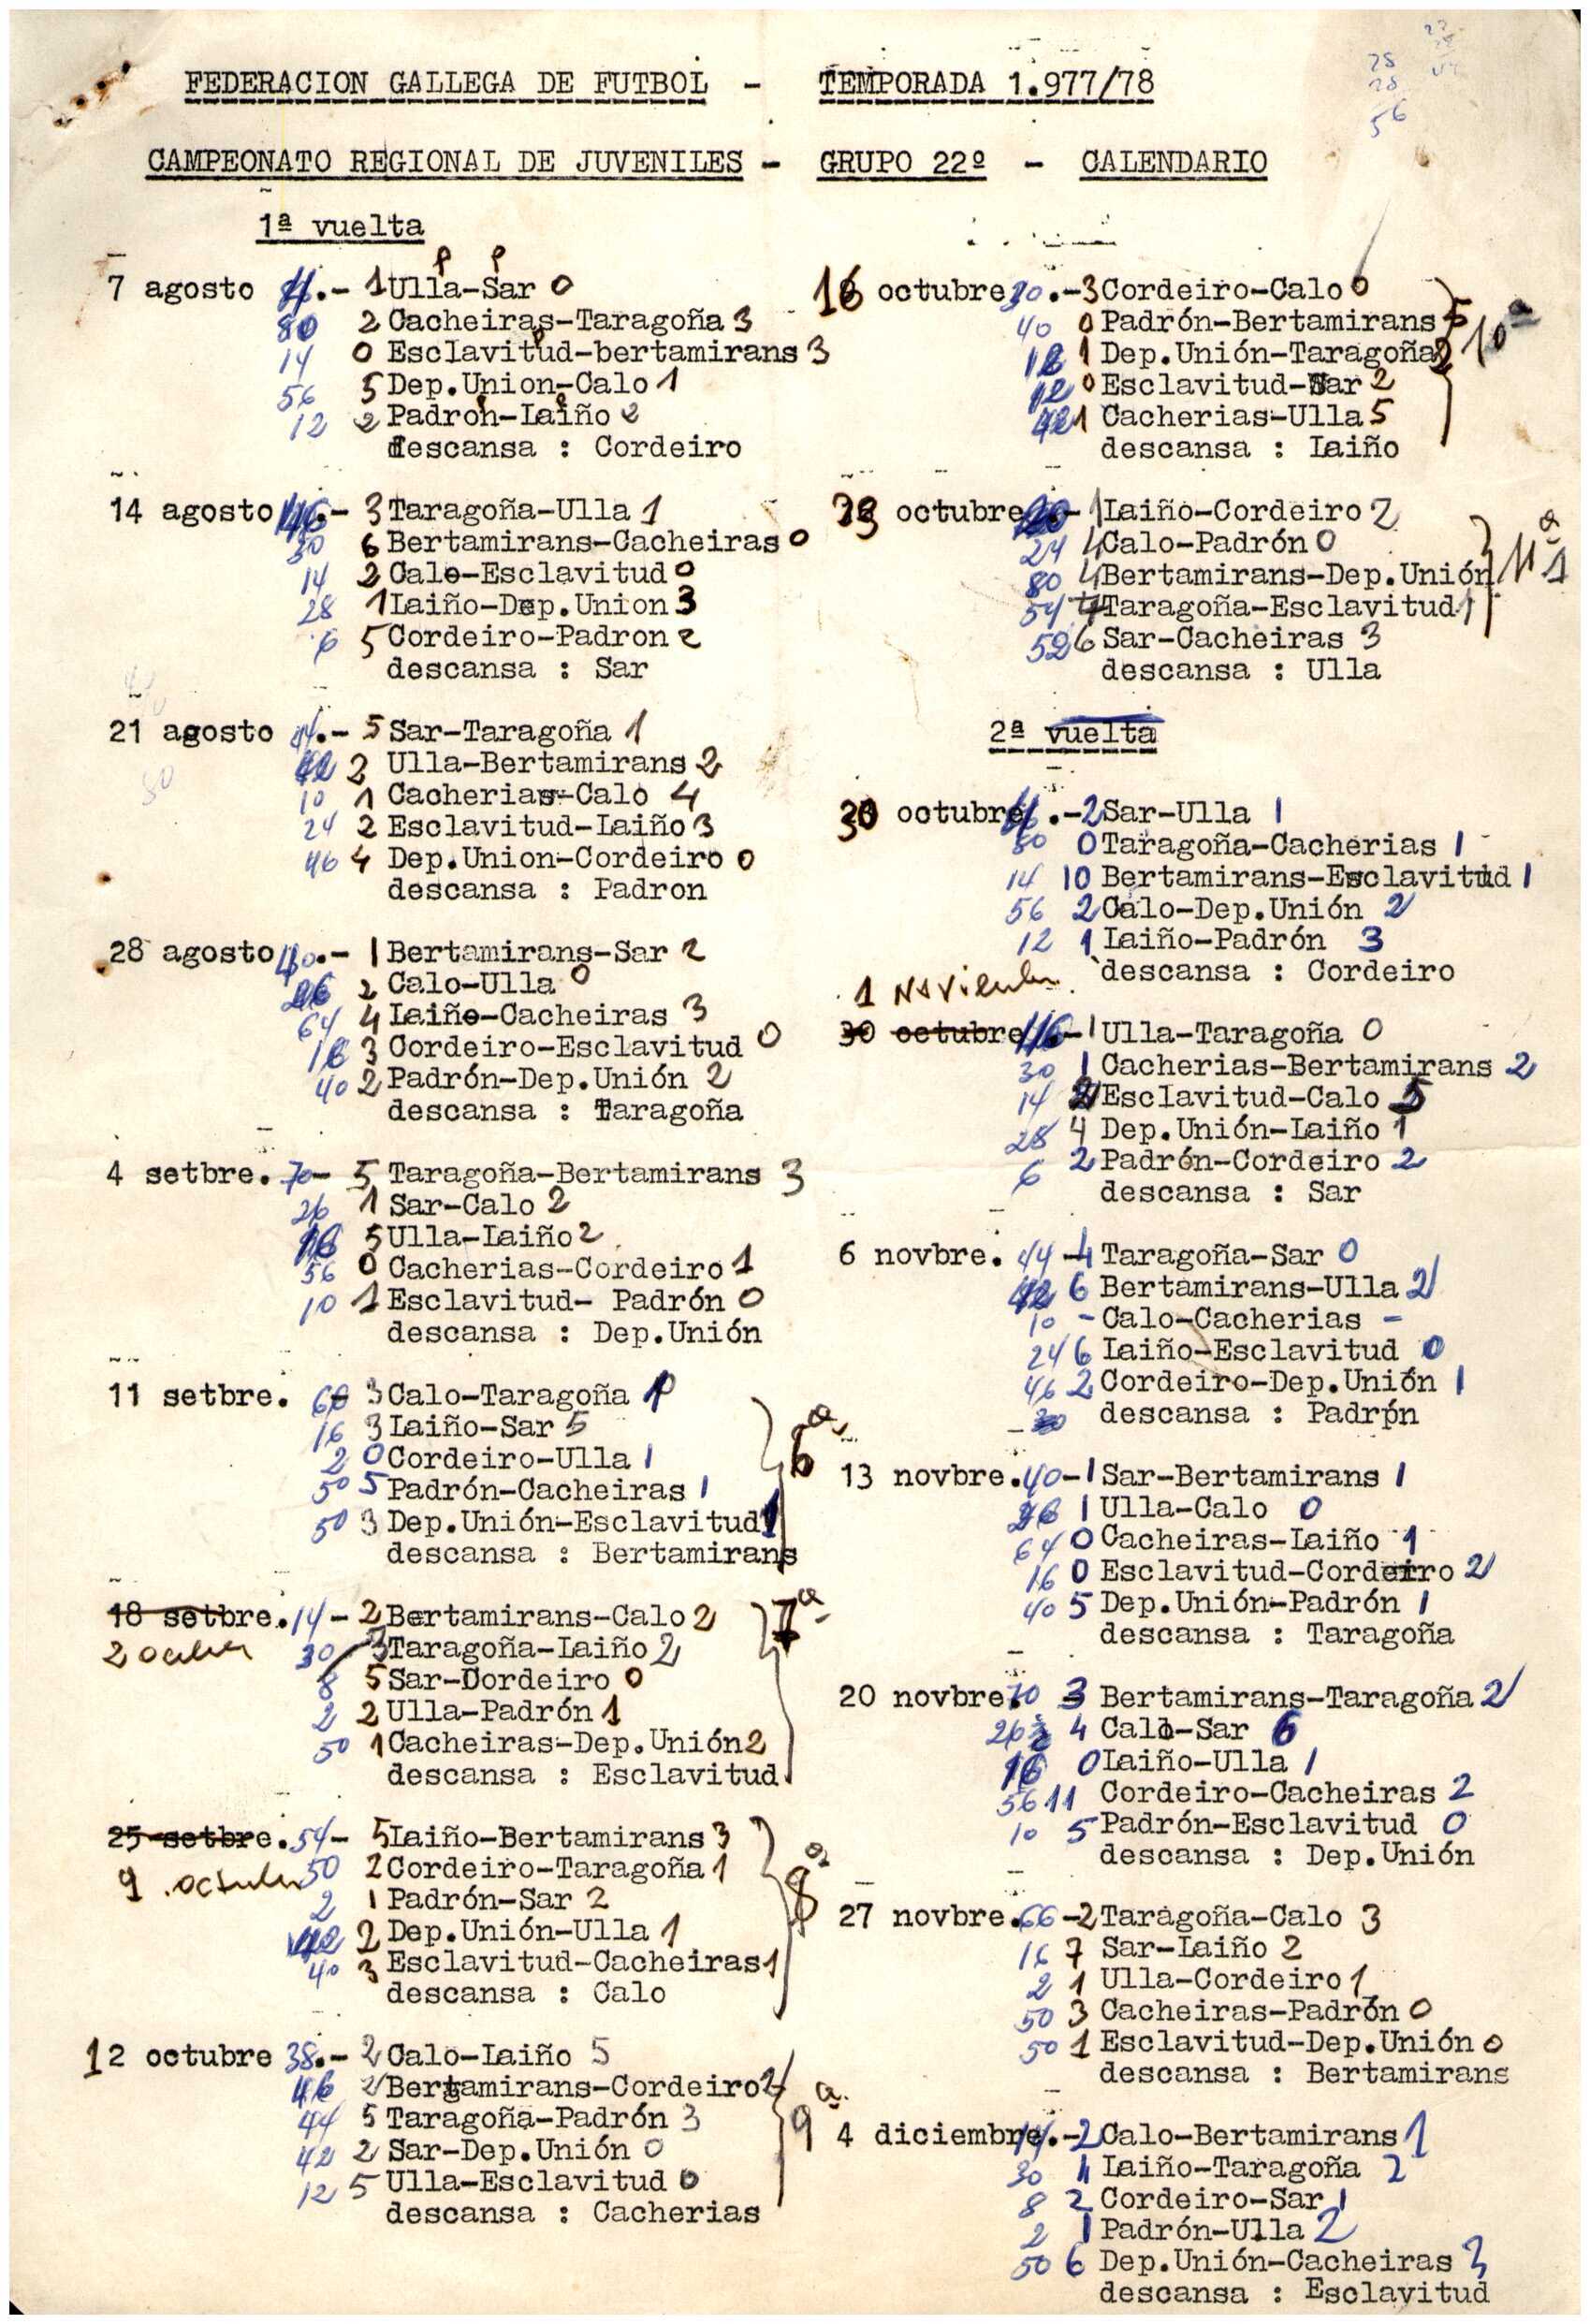 FEDERACION GALLEGA DE FUTBOL - TEMPORADA 1.977/78
28
28
56
CAMPEONATO REGIONAL DE JUVENILES - GRUPO 22º - CALENDARIO
1ª vuelta
7 agosto .- 1 Ulla-Sar 0
80 2 Cacheiras-Taragoña 3
14 0 Esclavitud-bertamirans 3
56 5 Dep.Union-Calo 1
12 2 Padron-Laiño 2
descansa : Cordeiro
14 agosto 116 .- 3 Taragoña-Ulla 1
30 6 Bertamirans-Cacheiras 0
14 2 Calo-Esclavitud 0
28 1 Laiño-Dep.Union 3
6 5 Cordeiro-Padron 2
descansa : Sar
21 agosto 44 .- 5 Sar-Taragoña 1
42 2 Ulla-Bertamirans 2
10 1 Cacherias-Calo 4
24 2 Esclavitud-Laiño 3
46 4 Dep.Union-Cordeiro 0
descansa : Padron
28 agosto 40 .- 1 Bertamirans-Sar 2
26 2 Calo-Ulla 0
64 4 Laiño-Cacheiras 3
16 3 Cordeiro-Esclavitud 0
40 2 Padrón-Dep.Unión 2
descansa : Taragoña
4 setbre. 70 - 5 Taragoña-Bertamirans 3
26 1 Sar-Calo 2
16 5 Ulla-Laiño 2
56 0 Cacherias-Cordeiro 1
10 1 Esclavitud- Padrón 0
descansa : Dep.Unión
11 setbre. 66 3 Calo-Taragoña
16 3 Laiño-Sar 5
2 0 Cordeiro-Ulla 1
50 5 Padrón-Cacheiras 1
50 3 Dep.Unión-Esclavitud 1
descansa : Bertamirans
6ª
18 setbre. 14 - 2 Bertamirans-Calo 2
2 octubre 30 3 Taragoña-Laiño 2
8 5 Sar-Cordeiro 0
2 2 Ulla-Padrón 1
50 1 Cacheiras-Dep.Unión 2
descansa : Esclavitud
7ª
25 setbre. 54 - 5 Laiño-Bertamirans 3
9 octubre 50 2 Cordeiro-Taragoña 1
2 1 Padrón-Sar 2
42 2 Dep.Unión-Ulla 1
40 3 Esclavitud-Cacheiras 1
descansa : Calo
8ª
12 octubre 38 .- 2 Calo-Laiño 5
46 2 Bertamirans-Cordeiro 2
44 5 Taragoña-Padrón 3
42 2 Sar-Dep.Unión 0
12 5 Ulla-Esclavitud 0
descansa : Cacherias
9ª
16 octubre .- 3 Cordeiro-Calo 0
40 0 Padrón-Bertamirans 5
12 1 Dep.Unión-Taragoña 2
12 0 Esclavitud-Sar 2
42 1 Cacherias-Ulla 5
descansa : Laiño
10ª
23 octubre 20 .- 1 Laiño-Cordeiro 2
24 4 Calo-Padrón 0
80 4 Bertamirans-Dep.Unión 1
54 4 Taragoña-Esclavitud 1
52 6 Sar-Cacheiras 3
descansa : Ulla
11ª
2ª vuelta
30 octubre .- 2 Sar-Ulla 1
80 0 Taragoña-Cacherias 1
14 10 Bertamirans-Esclavitud 1
56 2 Calo-Dep.Unión 2
12 1 Laiño-Padrón 3
descansa : Cordeiro
1 Noviembre
30 octubre 116 .- 1 Ulla-Taragoña 0
30 1 Cacherias-Bertamirans 2
14 2 Esclavitud-Calo 5
28 4 Dep.Unión-Laiño 1
6 2 Padrón-Cordeiro 2
descansa : Sar
6 novbre. 44 - 4 Taragoña-Sar 0
42 6 Bertamirans-Ulla 2
10 - Calo-Cacherias -
24 6 Laiño-Esclavitud 0
46 2 Cordeiro-Dep.Unión 1
descansa : Padrón
13 novbre. 40 - 1 Sar-Bertamirans 1
26 1 Ulla-Calo 0
64 0 Cacheiras-Laiño 1
16 0 Esclavitud-Cordeiro 2
40 5 Dep.Unión-Padrón 1
descansa : Taragoña
20 novbre. 70 3 Bertamirans-Taragoña 2
26 4 Calo-Sar 6
16 0 Laiño-Ulla 1
56 11 Cordeiro-Cacheiras 2
10 5 Padrón-Esclavitud 0
descansa : Dep.Unión
27 novbre. 66 - 2 Taragoña-Calo 3
16 7 Sar-Laiño 2
2 1 Ulla-Cordeiro 1
50 3 Cacheiras-Padrón 0
50 1 Esclavitud-Dep.Unión 0
descansa : Bertamirans
4 diciembre 14 .- 2 Calo-Bertamirans 1
30 Laiño-Taragoña 2
8 2 Cordeiro-Sar 1
2 1 Padrón-Ulla 2
50 6 Dep.Unión-Cacheiras 3
descansa : Esclavitud